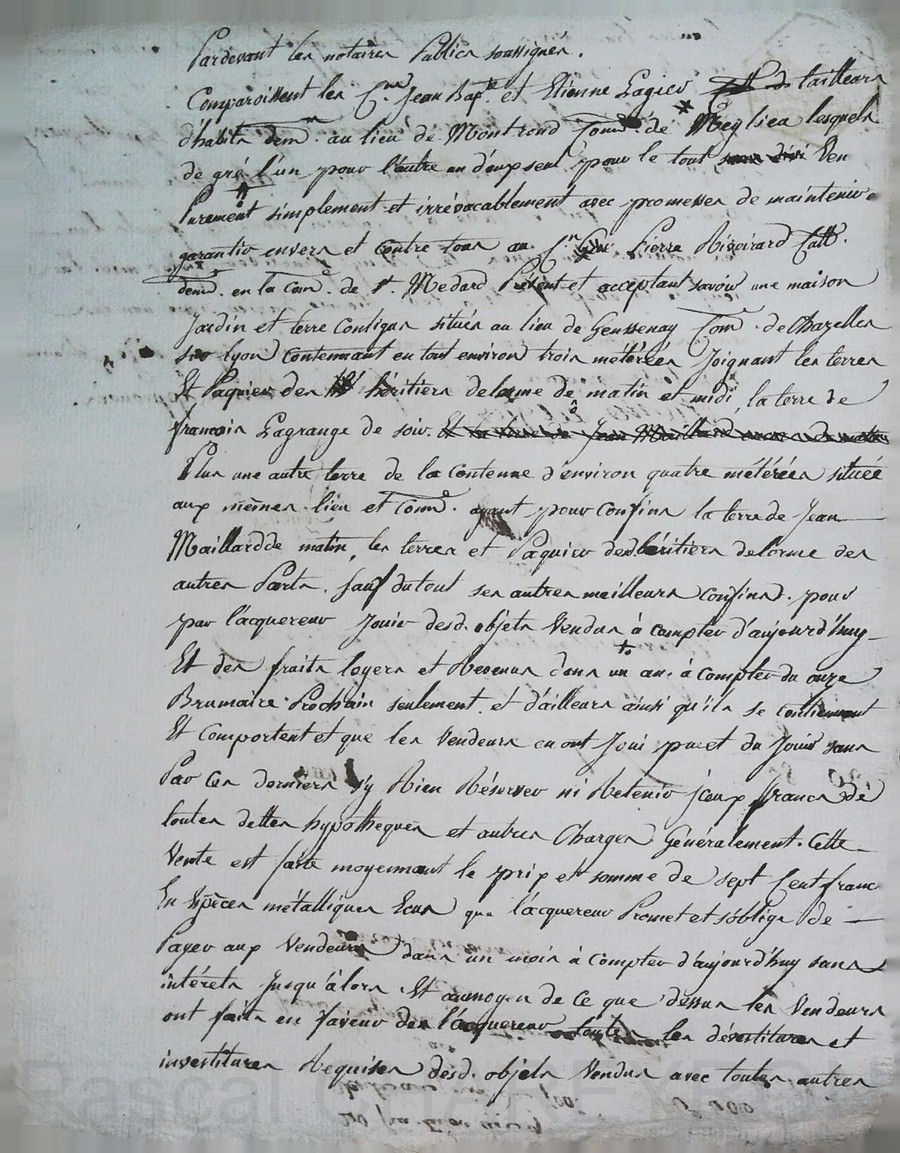 Pardevant les notaires Publics soussignés.
Comparoissent les C.ns Jean Bap.te et Etienne Pagier tailleurs
d'habits dem.t au lieu de Montrond Com.e de Meylieu lesquels
de gré l'un pour l'autre un d'eux seul pour le tout Ven
Purement simplement et irrévocablement avec promesses de maintenir
garantir envers et Contre tous au C.n Pierre Cult.
dem.t en la Com.e de S.t Medard Présent et acceptant savoir une maison
Jardin et terre Contigus situés au lieu de Com.e de Chazelles
sur lyon Contennant en tout environ trois métérées Joignant les terres
Et Paquier des héritiers delorme de matin et midi, la terre de
francois Lagrange de soir. Et la terre de Jean Maillard
Plus une autre terre de la Contenue d'environ quatre métérées située
aux mêmes lieu et Com.e ayant pour Confins la terre de Jean
Maillard de matin, les terres et Paquier des héritiers delorme des
autres Parts. Sauf du tout ses autres meilleurs Confins. pour
par l'acquereur Jouir desd. objets Vendus à compter d'aujourd'huy
Et des fruits loyers et Revenus dans un an à compter du onze
Brumaire Prochain seulement. et d'ailleurs ainsi qu'ils se contiennent
Et Comportent et que les Vendeurs en ont Joui pu et du Jouir sans
Par Ces derniers s'y Rien Réserver ni Retenir Iceux francs de
toutes dettes hypotheques et autres Charges Généralement. Cette
Vente est faite moyennant le prix et somme de sept Cent franc
En Espèces métalliques Ecus que l'acquereur Promet et s'oblige de
Payer aux Vendeurs dans un mois à Compter d'aujourd'huy sans
intérets Jusqu'alors Et aumoyen de Ce que dessus les Vendeurs
ont faits en faveur de l'acquereur toutes les dévestitures et
investitures Requises desd. objets Vendus avec toutes autres